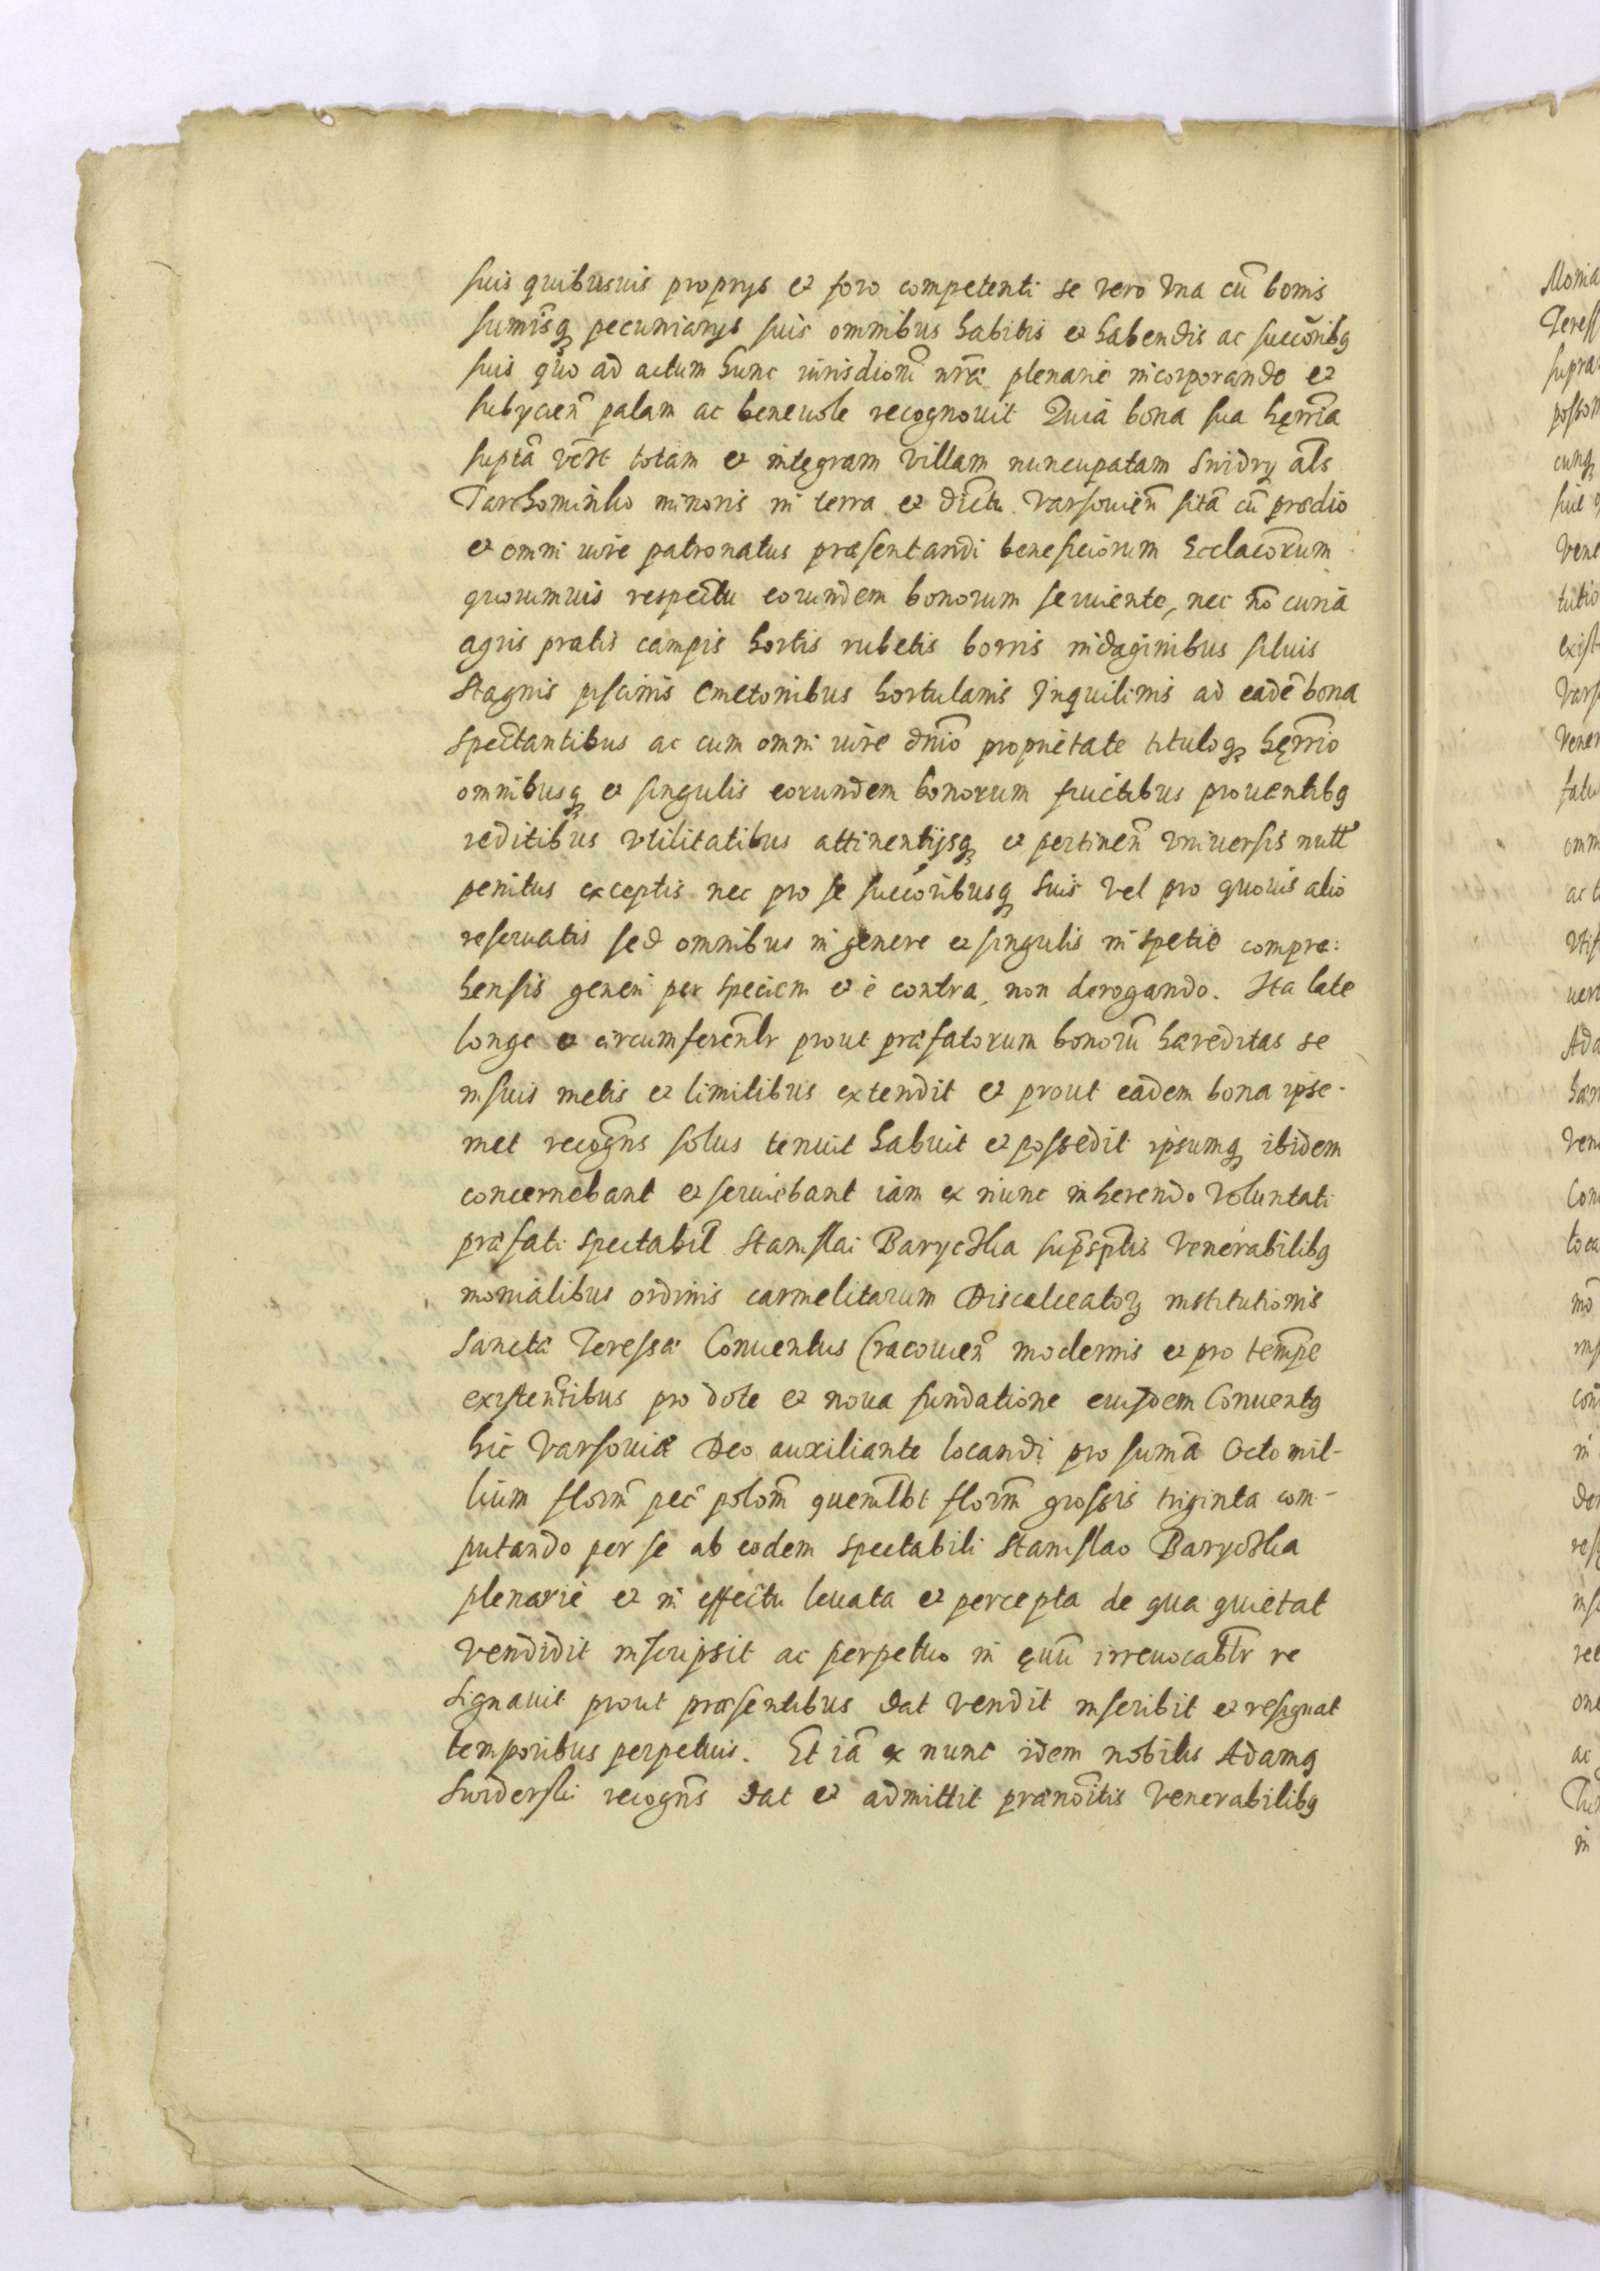 suis quibusuis proprys et foro competenti se vero vna cū bonis
sumīsq pecuniarys suis omnibus habitis et habendis ac succōribq
suis quo ad actum hunc iurisdioni nrã plenarie incorporando et
subyciēn palam ac beneuole recognouit Quia bona sua hęrria
suptã vērt totam et integram villam nuncupatam Snidry als
Tarchominko minoris in terra et dictu varsouiēn sitā cū prædio
et omni iure patronatus præsentandi beneficiorum Ecclacōrum
quorumuis respectu eorundem bonorum seruiente, nec nō curia
agris pratis campis hortis rubetis borris indaginibus siluis
stagnis piscinis Cmetonibus hortulanis Inquilinis ad eadē bona
spectantibus ac cum omni iure dnio proprietate tituloq hęrrio
omnibusq et singulis eorundem bonorum fructibus prouentibq
reditibus vtilitatibus attinentijsq et pertinēn vniuersis null
penitus exceptis nec pro se succōribusq suis vel pro quouis alio
reseruatis sed omnibus in genere et singulis in spetie compre:
hensis generi per speciem et è contra, non derogando. Ita late
longe et circumferēntr prout præfatorum bonorū hæreditas se
in suis metis et limitibus extendit et prout eadem bona ipse-
met recogns solus tenuit habuit et possedit ipsumq ibidem
concernebant et seruiebant iam ex nunc inherendo voluntati
præfati spectabil Stanislai Baryczka supsptis Venerabilibq
monialibus ordinis carmelitarum Discalceatorz institutionis
Sanctæ Teressæ Conuentus Cracouiēn modernis et pro tempe
existentibus pro dote et noua fundatione eiusdem Conuentq
hic Varsouiæ Deo auxiliante locandi pro sumā Octo mil-
lium florm pec polom quemlbt florm grossis triginta com-
putando per se ab eodem spectabili Stanislao Baryczka
plenarie et in effectu leuata et percepta de qua quietat
vendidit inscripsit ac perpetuo in ęuū irreuocabltr re
signauit prout præsentibus dat vendit inscribit et resignat
temporibus perpetuis. Et iā ex nunc idem nobilis Adamq
Swiderski recogns dat et admittit prænoītis Venerabilibq